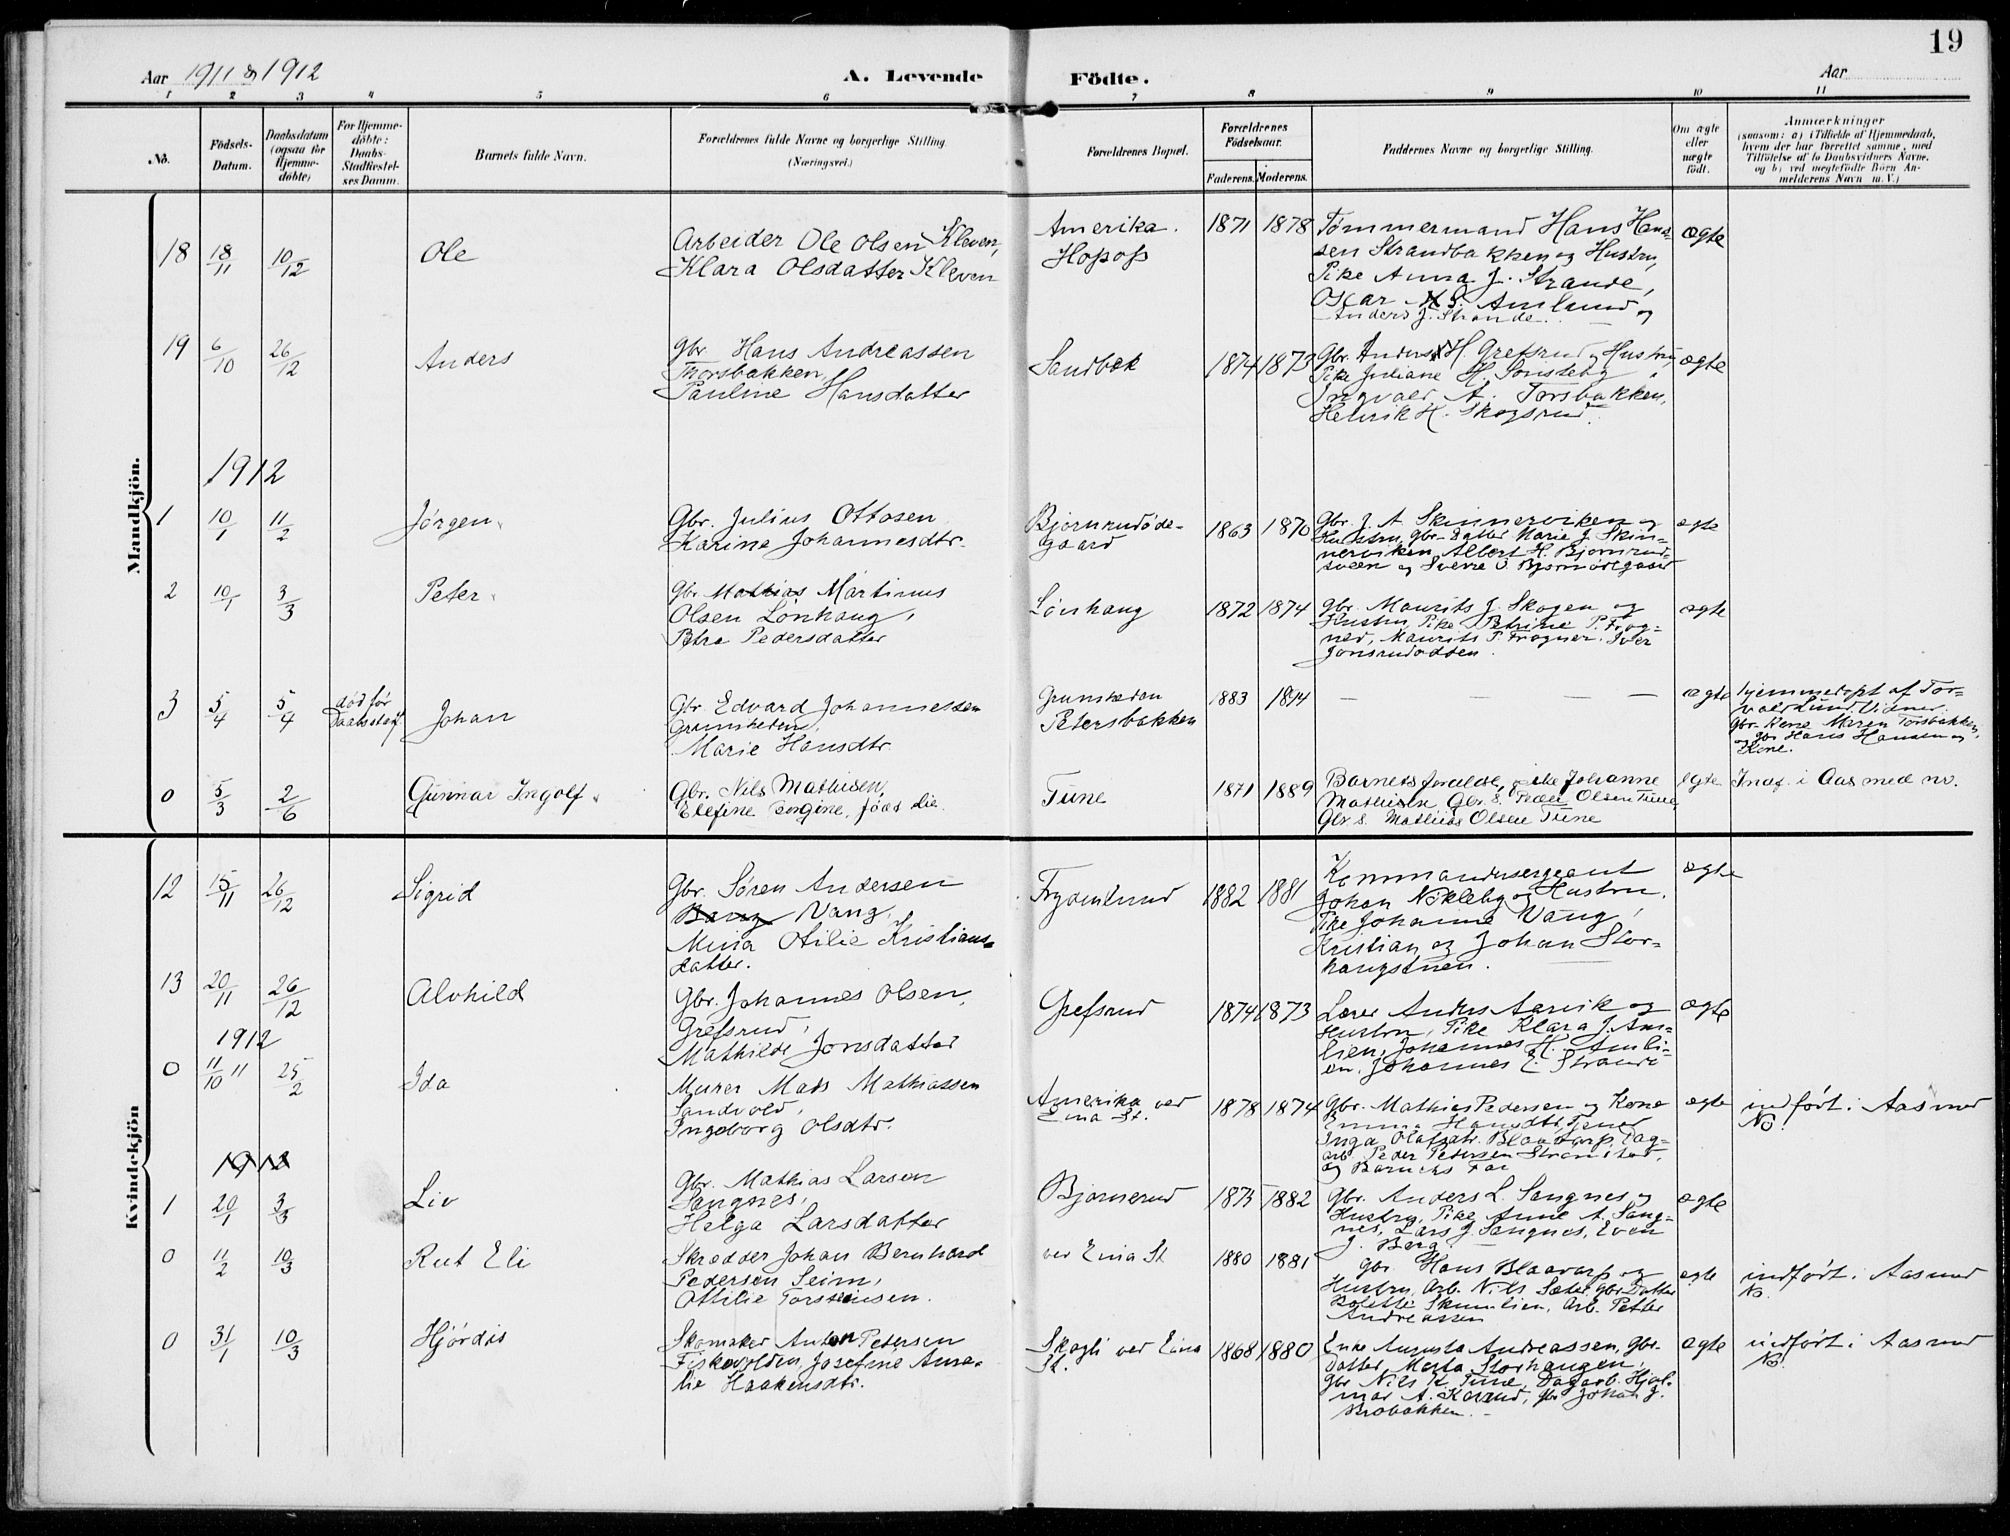 19
Aar 1911 & 1912 A. Levende Födte. Aar
1 2 3 4 5 6 7 8 9 10 11
No.
Födsels-
Datum.
Daabsdatum
(ogsaa for
Hjemme-
döbte)
For Hjemme-
döbte:
Daabs-
Stadfæstel-
ses Datum.
Barnets fulde Navn.
Forældrenes fulde Navne og borgerlige Stilling
(Næringsvei.)
Forældrenes Bopæl.
Forældrenes
Födselsaar.
Faderens. Moderens.
Faddernes Navne og borgerlige Stilling.
Om ægte
eller
uægte
födt.
Anmærkninger
(saasom: a) i Tilfælde af Hjemmedaab,
hvem der har forrettet samme, med
Tilföielse af to Daabsvidners Navne,
og b) ved uægtefödte Börn An-
melderens Navn m. V.)
Mandkjön.
18 18/11 10/12 Ole
Arbeider Ole Olsen Kleven,
Klara Olsdatter Kleven
Amerika.
Hofoss
1871 1878
Tømmermand Hans Han-
sen Strandbakken og Hustru,
Pike Anna J. Strande,
Oscar S. Amlund og
Anders J. Strande.
ægte
19 6/10 26/12 Anders
Gbr. Hans Andreassen
Thorsbakken,
Pauline Hansdatter
Sandbæk
1874 1873
Gbr. Anders H. Grefsrud og Hustru,
Pike Juliane H. Sønsteby,
Ingvald A. Torsbakken,
Henrik H. Skogsrud.
ægte
1912
1 10/1 11/2 Jørgen
Gbr. Julius Ottosen
Karine Johannesdtr.
Bjørnrudøde-
gaard
1863 1870
Gbr. J. A. Skinnerviken og
Hustru, gbr. Datter Marie J. Skin-
nerviken, Albert H. Bjørnrud-
sveen og Sverre O.
ægte
2 10/1 3/3 Peter
Gbr. Mathias Martinus
Olsen Lønhaug,
Petra Pedersdatter
Lønhaug
1872 1874
Gbr. Maurits J. Skogen og
Hustru, Pike Petrine P. Frog-
ner, Maurits P. Frogner, Iver
Jonsrudodden.
ægte
3 5/4 5/4 død før
Daabsstadf. Johan
Gbr. Edvard Johannessen
Grønsheden,
Marie Hansdtr.
Grønsheden
Petersbakken
1883 1894
— — — —
ægte
hjemmedøpt af Tor-
vald Lund. Vidner:
Gbr. Kone Maren Torsbakken,
og Gbr. Hans Hansen og
Kone.
0 5/3 2/6 Gunnar Ingolf
Gbr. Nils Mathisen,
Elefine Jørgine, føds Lie.
Tune
1871 1889
Barnets forældre, Pike Johanne
Mathisen Gbr. s. Peder Olsen Tune
Gbr. s. Mathias Olsen Tune
ægte
Indf. i Aas med no.
Kvindekjön
12 15/11 26/12 Sigrid
Gbr. Søren Andersen
Bang Vang,
Mina Otilie Kristians-
datter.
Frydenlund
1882 1881
Kommandersergeant
Johan Nøkleby og Hustru,
Pike Johanne Vang,
Kristian og Johan Stor-
haugstuen.
ægte
13 20/11 26/12 Alvhild
Gbr. Johannes Olsen,
Grefsrud,
Mathilde Jonsdatter
Grefsrud
1874 1873
Lærer Anders Aarvik og
Hustru, Pike Klara J. Am-
lien, Johannes H. Amli-
en, Johannes E. Strande
ægte
1912
0 11/10 11 25/2 Ida
Murer Mads Mathiassen
Sandvold,
Ingeborg Olsdtr.
Amerika ved
Eina St.
1878 1874
Gbr. Mathias Pedersen og Kone
Emma Hansdtr. Tømte
Inga Olafsdtr. Blaavarp, Dag-
arb. Peder Pedersen Strømstad,
og Barnets Far
ægte
indført i Aas med
No.
1912
1 20/1 3/3 Liv
Gbr. Mathias Larsen
Sangnes,
Helga Larsdatter
Bjørnerud
1875 1882
Gbr. Anders L. Sangnes og
Hustru, Pike Anne A. Sang-
nes, Lars J. Sangnes, Even
J. Berg.
ægte
0 11/2 10/3 Rut Eli
Skrædder Johan Bernhard
Pedersen Seim,
Ottilie Torsteinsen.
ved Eina St
1880 1881
Gbr. Hans Blaavarp og
Hustru, Arb. Nils Sæter, gbr. Datter
Bolette Skumlien, Arb. Petter
Andreassen
ægte
indført i Aas med
No.
0 31/1 10/3 Hjørdis
Skomaker Anton Petersen
Fiskevolden, Josefine Ama-
lie Haakensdtr.
Skogli ved Eina
St.
1868 1880
Enke Augusta Andreassen, Gbr.
Datter Marta Storhaugen,
Gbr. Nils K. Tune, Dagarb. Hjal-
mar A. Korsrud, Gbr. Johan J.
Brobakken.
ægte
indført i Aas med
No.